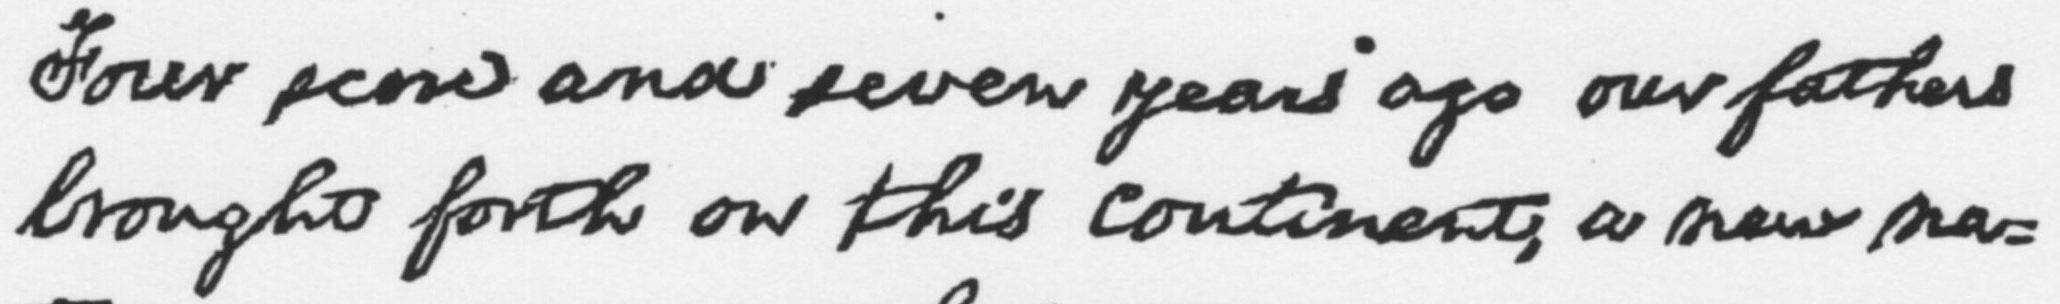 Four score and seven years ago our fathers
brought forth on this continent, a new na=